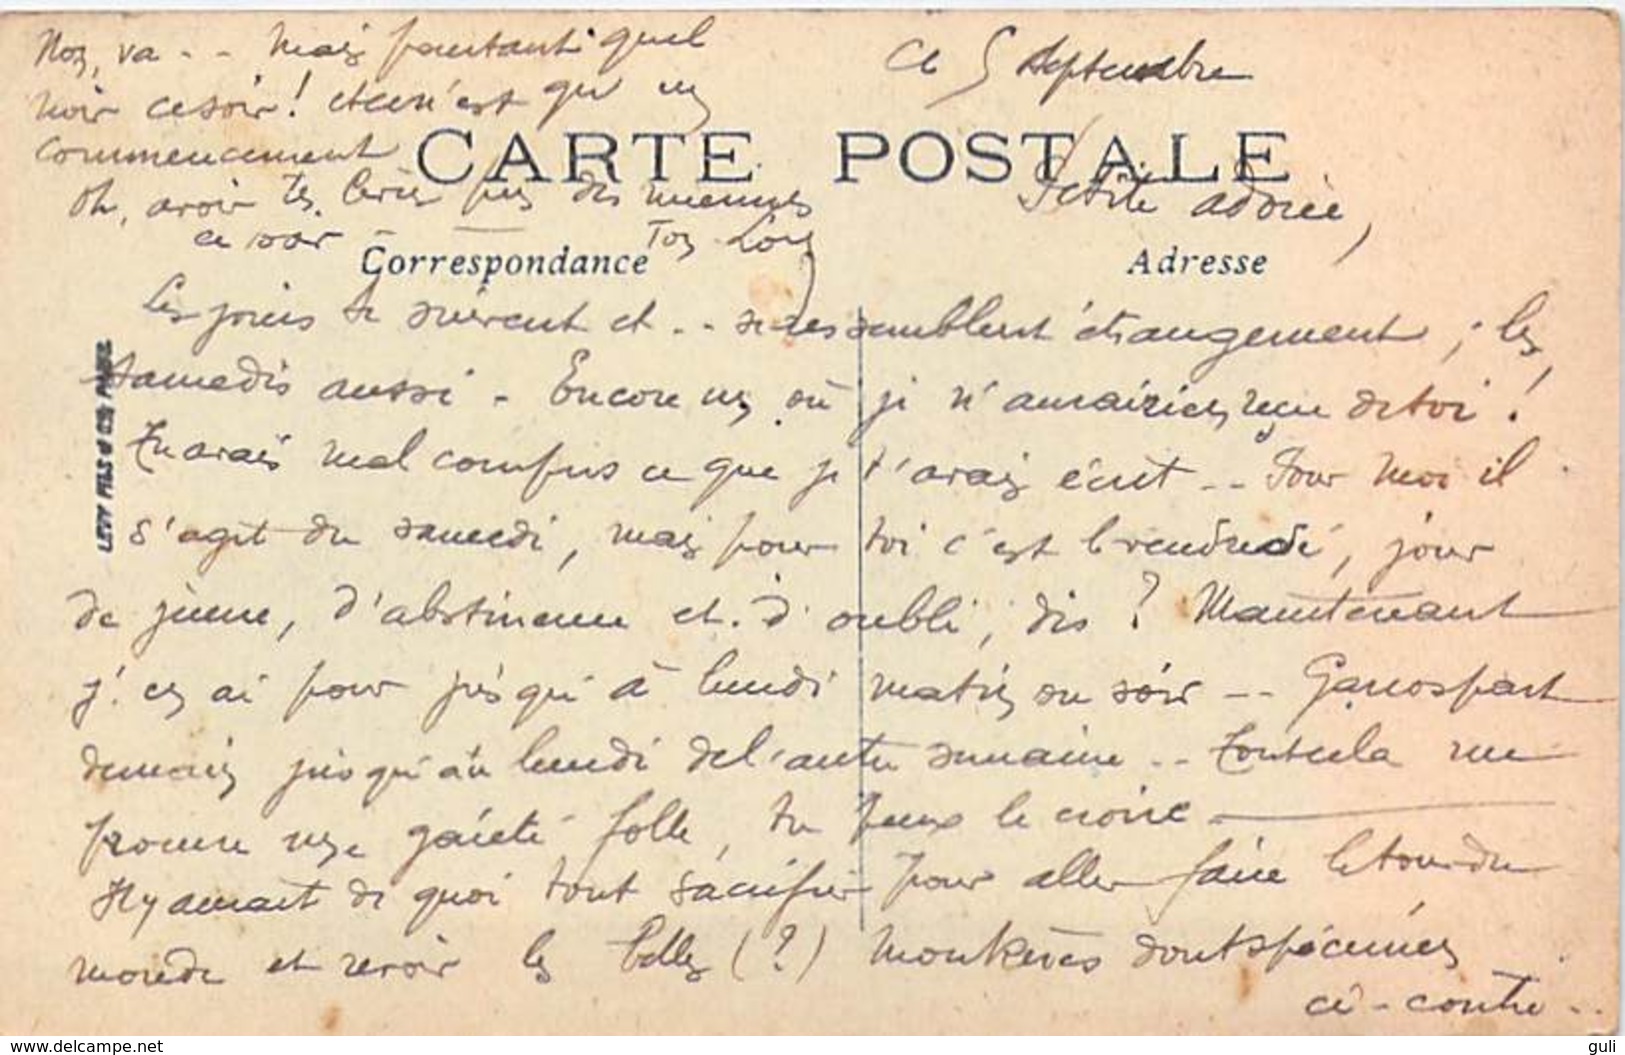 Ce 5 Septembre
CARTE POSTALE
Petite adorée,
Correspondance
Adresse
Les jours se suivent et .. se ressemblent étrangement ; les
samedis aussi - Encore un où je n'aurai rien reçu de toi !
Tu avais mal compris ce que je t'avais écrit .. Pour moi il
s'agit du samedi, mais pour toi c'est le vendredi, jour
de jeûne, d'abstinence et d'oubli, dis ? Maintenant
j'en ai pour jusqu'à lundi matin ou soir --
demain jusqu'au lundi de l'autre semaine .. Tout cela me
procure une gaieté folle, tu peux le croire -
Il y aurait de quoi tout sacrifier pour aller faire le tour du
monde et revoir les belles (?) dont spécimen
ci-contre ..
Non, va .. Mais pourtant quel
noir ce soir ! et ce n'est qu'un
commencement
Oh, avoir tes lèvres près des miennes
ce soir
Ton
LEVY FILS & Cie PARIS
www.delcampe.net
guli